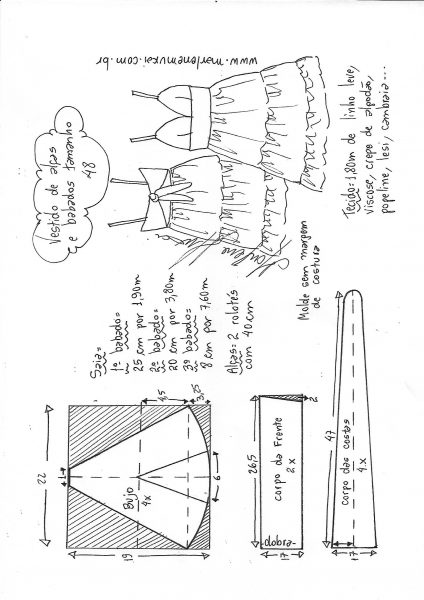 www.marlenemukai.com.br
Vestido de alças
e babados tamanho
48
Tecido=1,80m de linho leve,
viscose, crepe de algodão,
popeline, lesi, cambraia...
Saia=
1º babado=
25 cm por 1,90m
2º babado=
20 cm por 3,80m
3º babado=
8 cm por 7,60m
Alças=2 rolotês
com 40cm
Molde sem margem
de costura
22
1
4,5
3,25
Bojo
4x
6
19
26,5
2
corpo da frente
2x
dobra
17
47
corpo das costas
4x
17